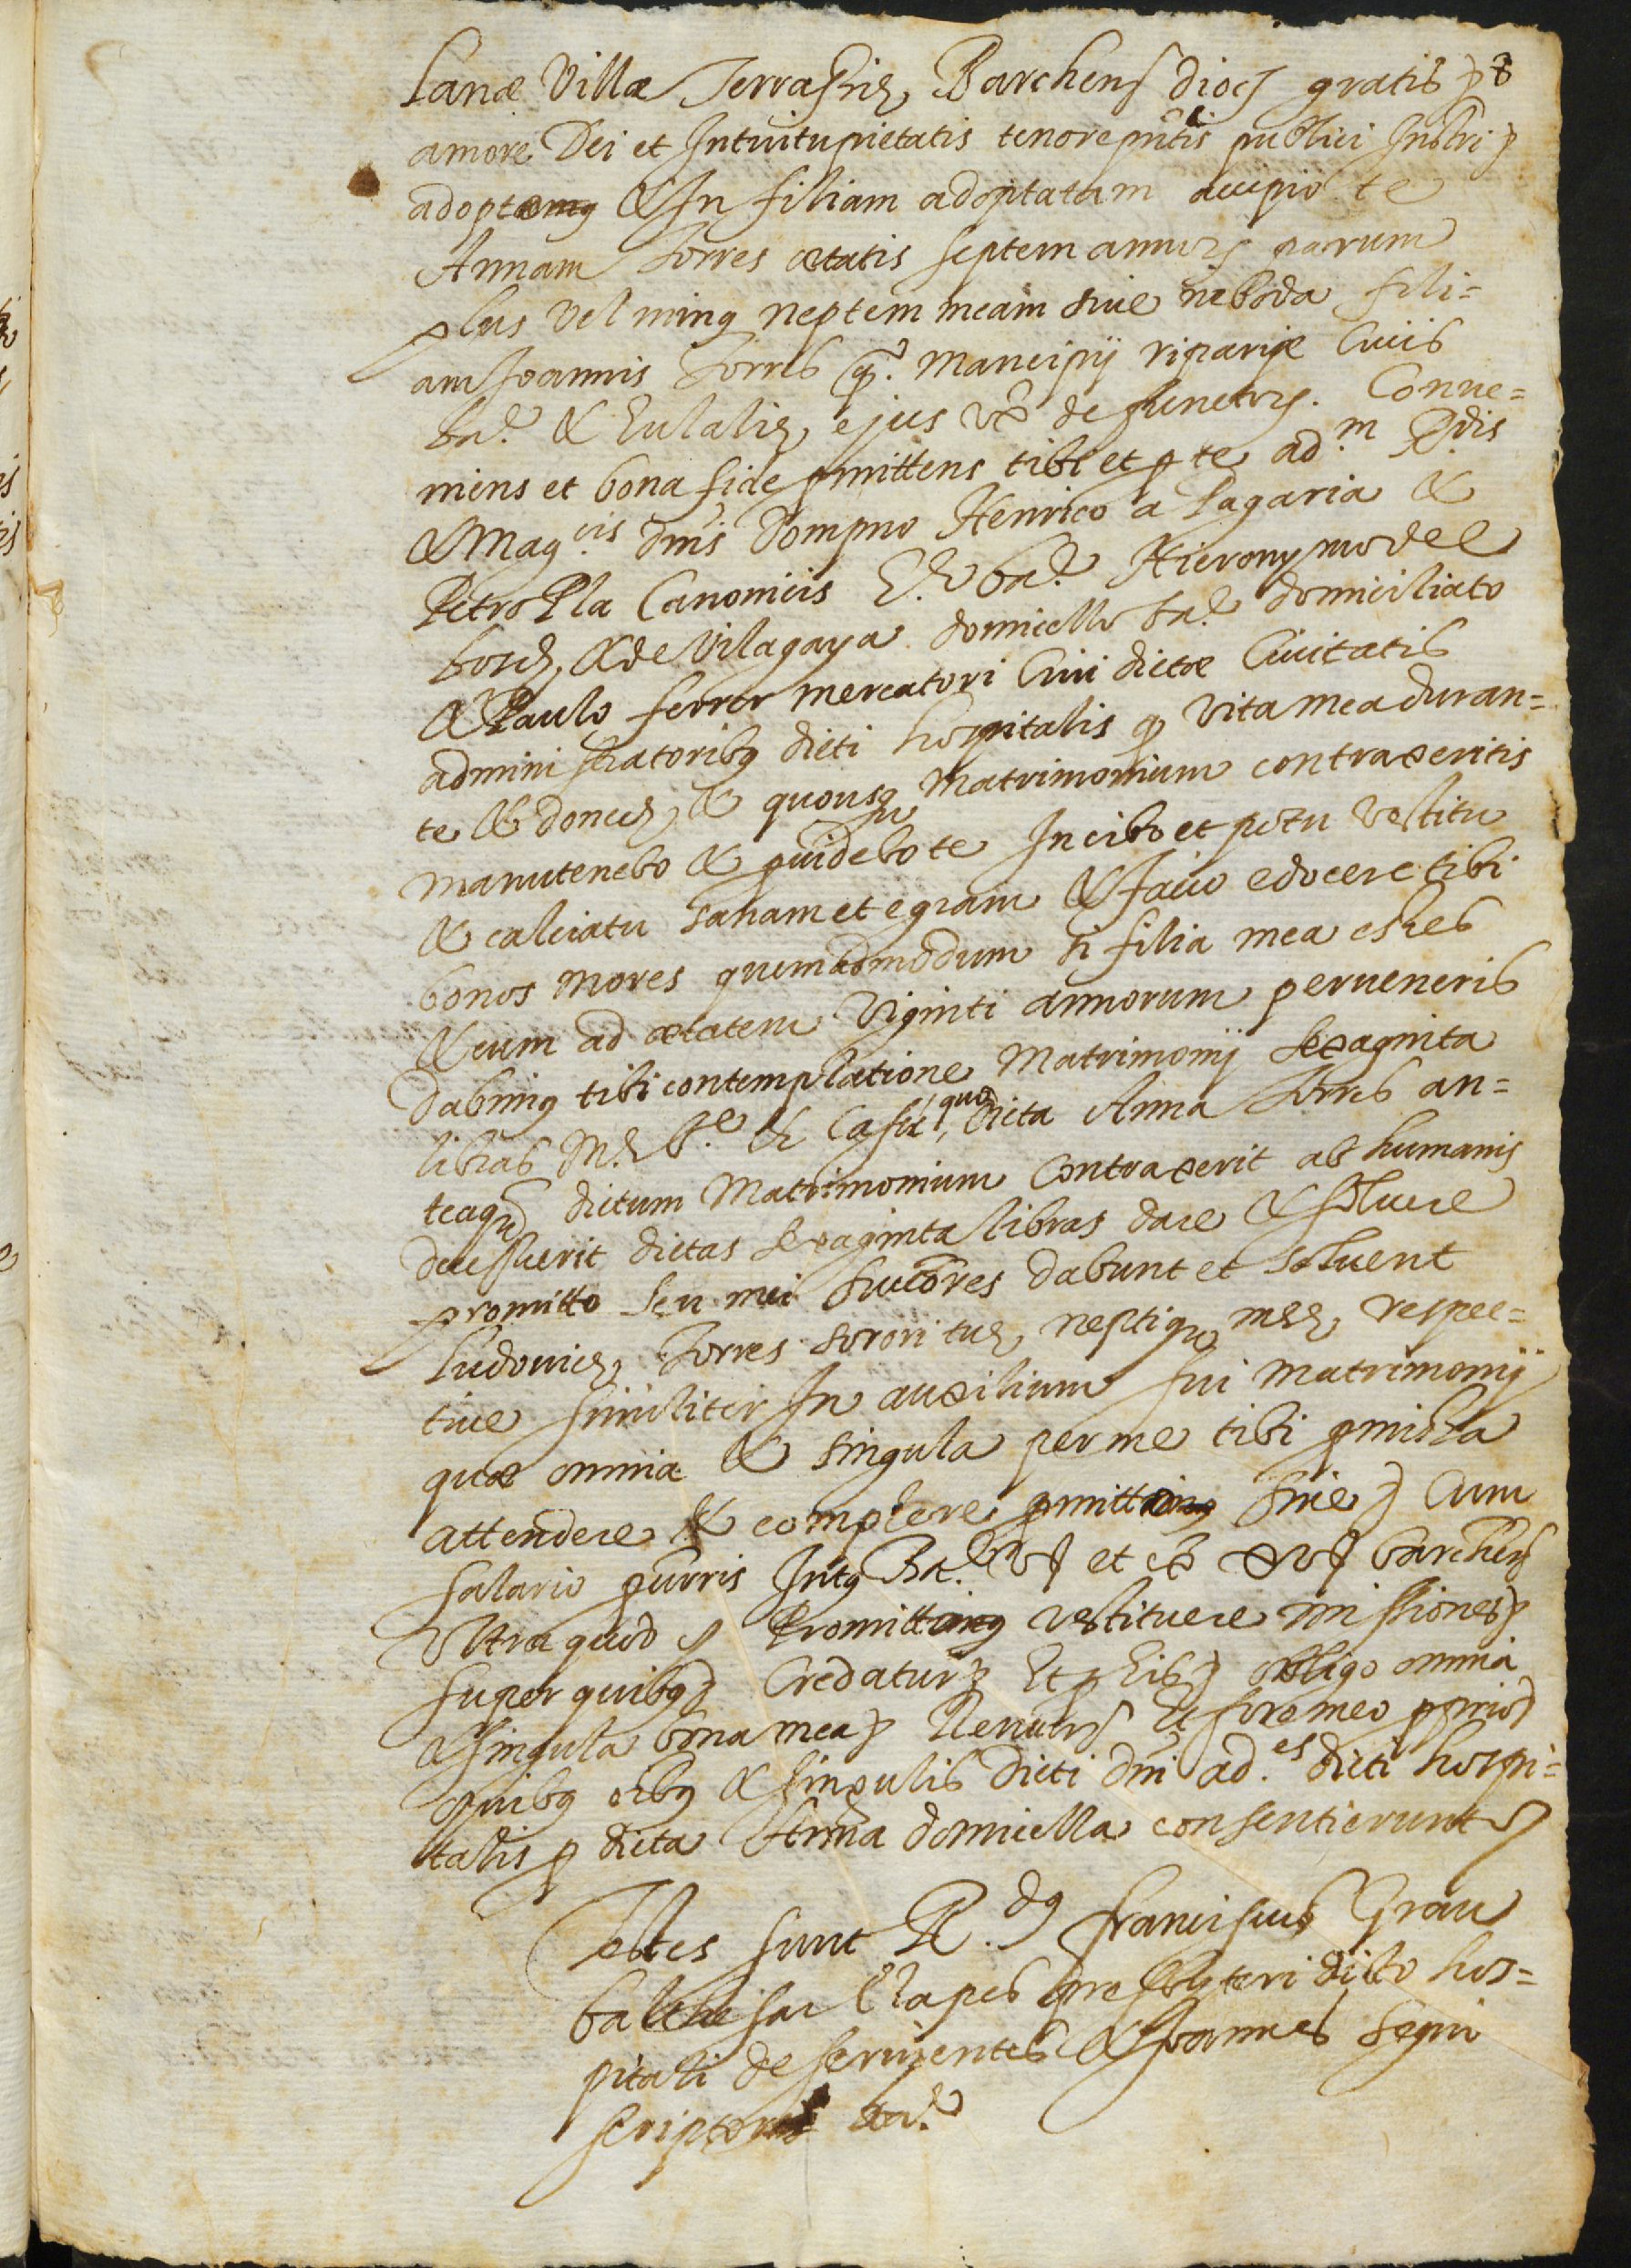 Lanæ Villæ Terrassiæ Barchens dioc gratis
amore Dei et Intuitu pietatis tenore pntis publici Instri
adopto & In filiam adoptatam accipio te
Annam Torres ætatis septem annorz parum
plus vel minus neptem meam sive neboda fili=
am Joannis Torres q.º Mancipij ripariæ Civis
bar. & Eulaliæ ejus ux defunctorz. Conve=
niens et bona fide promittens tibi et p te ad.m R.dis
& Mag.cis Dnis Dompno Henrico a Pagaria &
Petro Pla Canonicis bar. Hieronymo del
bosch & de Vilagaya domicello bar. domiciliato
& Paulo ferrer mercatori Civi dictæ Civitatis
administratoribus dicti hospitalis q vita mea duran=
te & donec & quousq Matrimonium contraxeritis
manutenebo & providebo te In cibo et potu vestitu
& calciatu sanam et egram & facio edocere tibi
bonos mores quemadmodum si filia mea esses
& cum ad ætatem viginti annorum perveneris
dabimus tibi contemplatione Matrimonij sexaginta
libras Et Casu quo dicta Anna Torres an=
teaq dictum Matrimonium Contraxerit ab humanis
decesserit dictas sexaginta libras dare & solvere
promitto seu mei successores dabunt et solvent
Ludovicæ Torres sorori tuæ neptiq meæ respec=
tive similiter In auxilium sui Matrimonij
quæ omnia & singula per me tibi promissa
attendere & complere promitto sine Cum
salario procurris Intus Bar. vs et ex xvs barchens
Ultra quod Promitto restituere missiones
super quibus Credatur Et p his obligo omnia
& singula bona mea Renuns Et foro meo proprio
quibus oibus & singulis dicti dni ad.es dicti hospi=
talis p dicta Anna domicella consentierunt
Testes sunt R.dus franciscus Grau
balthesar Clapes presbyteri dicto hos=
pitali deservientes & Joannes Segui
scriptor bar.